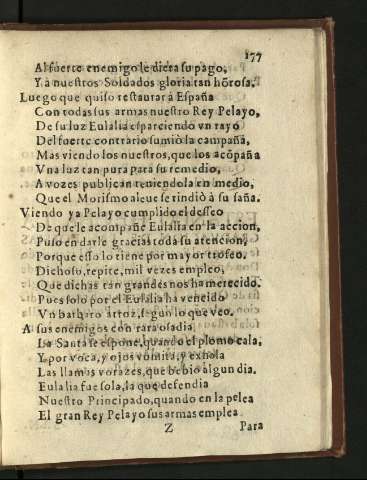 177
Al fuerte enemigo le diera su pago,
Y à nuestros Soldados gloria tan hõrosa.
Luego que quiso restaurar à España
Con todas sus armas nuestro Rey Pelayo,
De su luz Eulalia esparciendo vn rayo
Del fuerte contrario sumiò la campaña,
Mas viendo los nuestros, que los acõpaña
Vna luz tan pura para su remedio,
A vozes publican teniendola en medio,
Que el Morismo aleue se rindiò à su saña.
Viendo ya Pelayo cumplido el desseo
De que le acompañe Eulalia en la accion,
Puso en darle gracias toda su atencion,
Porque esso lo tiene por mayor trofeo.
Dichoso, repite, mil vezes empleo,
Que dichas tan grandes nos ha merecido.
Pues solo por el Eulalia ha vencido
Vn barbaro arroz, segun lo que veo.
A sus enemigos con rara osadia
La Santa se espone, quando el plomo cala,
Y por voca, y ojos vomita, y exhola
Las llamas vorazes, que bebiò algun dia.
Eulalia fue sola, la que defendia
Nuestro Principado, quando en la pelea
El gran Rey Pelayo sus armas emplea
Z Para